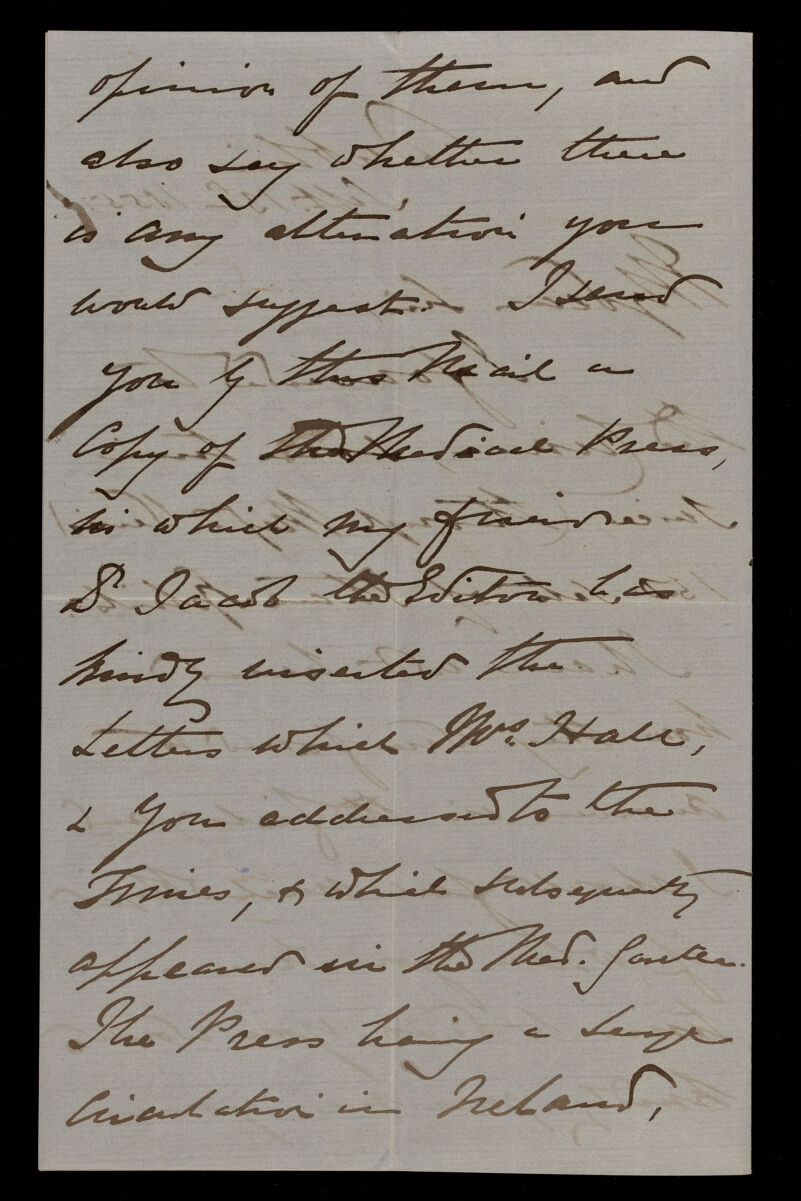 opinion of them, and
also say whether there
is any alteration you
would suggest. I send
you by this Mail a
Copy of The Medical Press,
in which my friend
Dr Jacob the Editor has
kindly inserted the
Letters which Mrs. Hall,
& You addressed to the
Times, & which subsequently
appeared in the Med. Gazette.
The Press having a large
Circulation in Ireland,